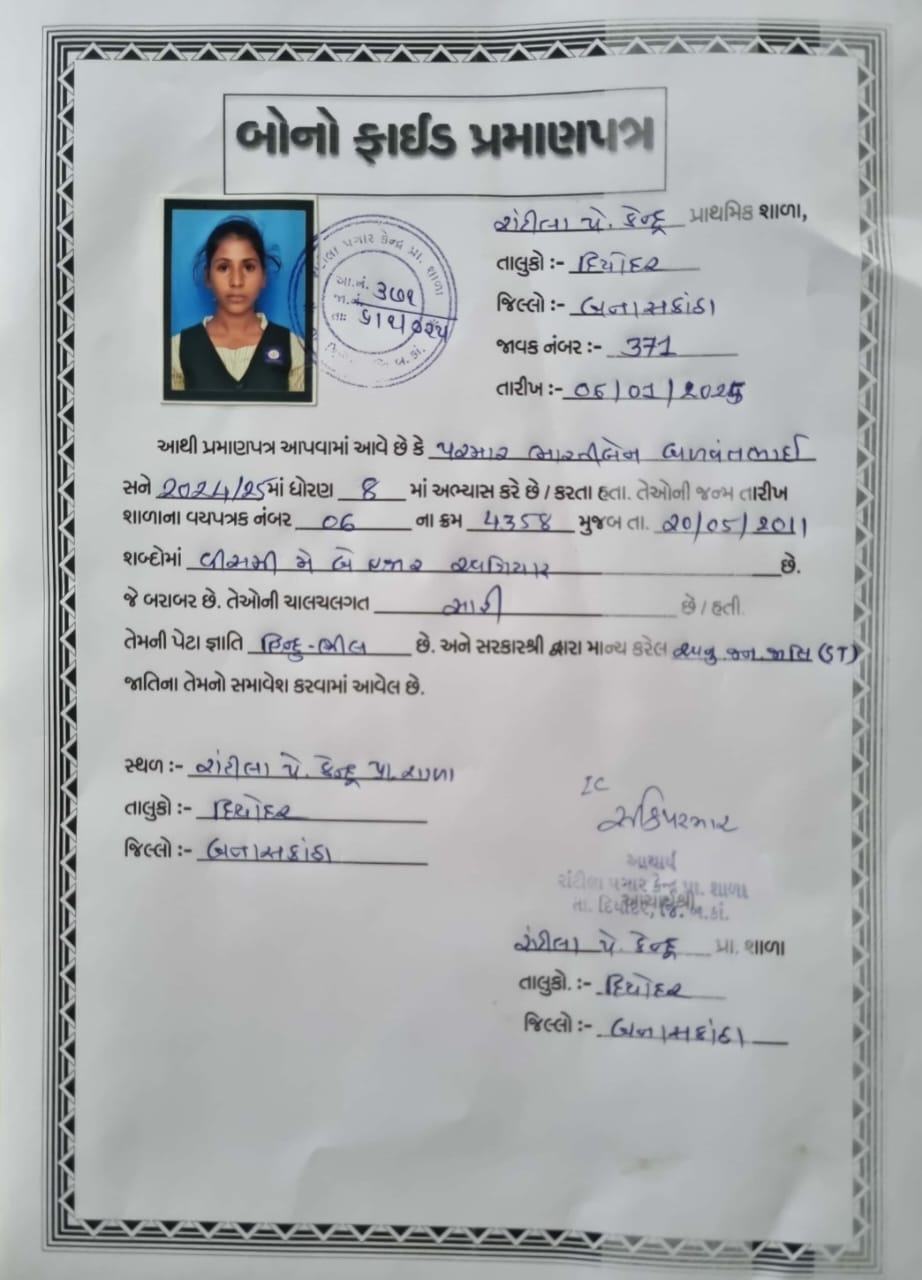 બોનો ફાઈડ પ્રમાણપત્ર
રાંટીલા પે. કેન્દ્ર પ્રાથમિક શાળા,
તાલુકો :- દિયોદર
જિલ્લો :- બનાસકાંઠા
જાવક નંબર :- 371
તારીખ :- 06/01/2025
પગાર કેન્દ્ર પ્રા. શાળા
આ.નં. ૩૭૧
જા.નં.
તાઃ
આથી પ્રમાણપત્ર આપવામાં આવે છે કે પરમાર ભારતીબેન બળવંતભાઈ
સને 2024/25માં ધોરણ 8 માં અભ્યાસ કરે છે / કરતા હતા. તેઓની જન્મ તારીખ
શાળાના વયપત્રક નંબર 06 ના ક્રમ 4358 મુજબ તા. 20/05/2011
શબ્દોમાં વીસમી મે બે હજાર અગિયાર છે.
જે બરાબર છે. તેઓની ચાલચલગત સારી છે / હતી.
તેમની પેટા જ્ઞાતિ હિન્દુ-ભીલ છે. અને સરકારશ્રી દ્વારા માન્ય કરેલ અનુ. જન. જાતિ (ST)
જાતિના તેમનો સમાવેશ કરવામાં આવેલ છે.
સ્થળ :- રાંટીલા પે. કેન્દ્ર પ્રા. શાળા
તાલુકો :- દિયોદર
જિલ્લો :- બનાસકાંઠા
IC
આચાર્ય
રાંટીલા પગાર કેન્દ્ર પ્રા. શાળા
આચાર્યશ્રી
તા. દિયોદર, જિ. બ.કાં.
રાંટીલા પે. કેન્દ્ર પ્રા. શાળા
તાલુકો. :- દિયોદર
જિલ્લો :- બનાસકાંઠા